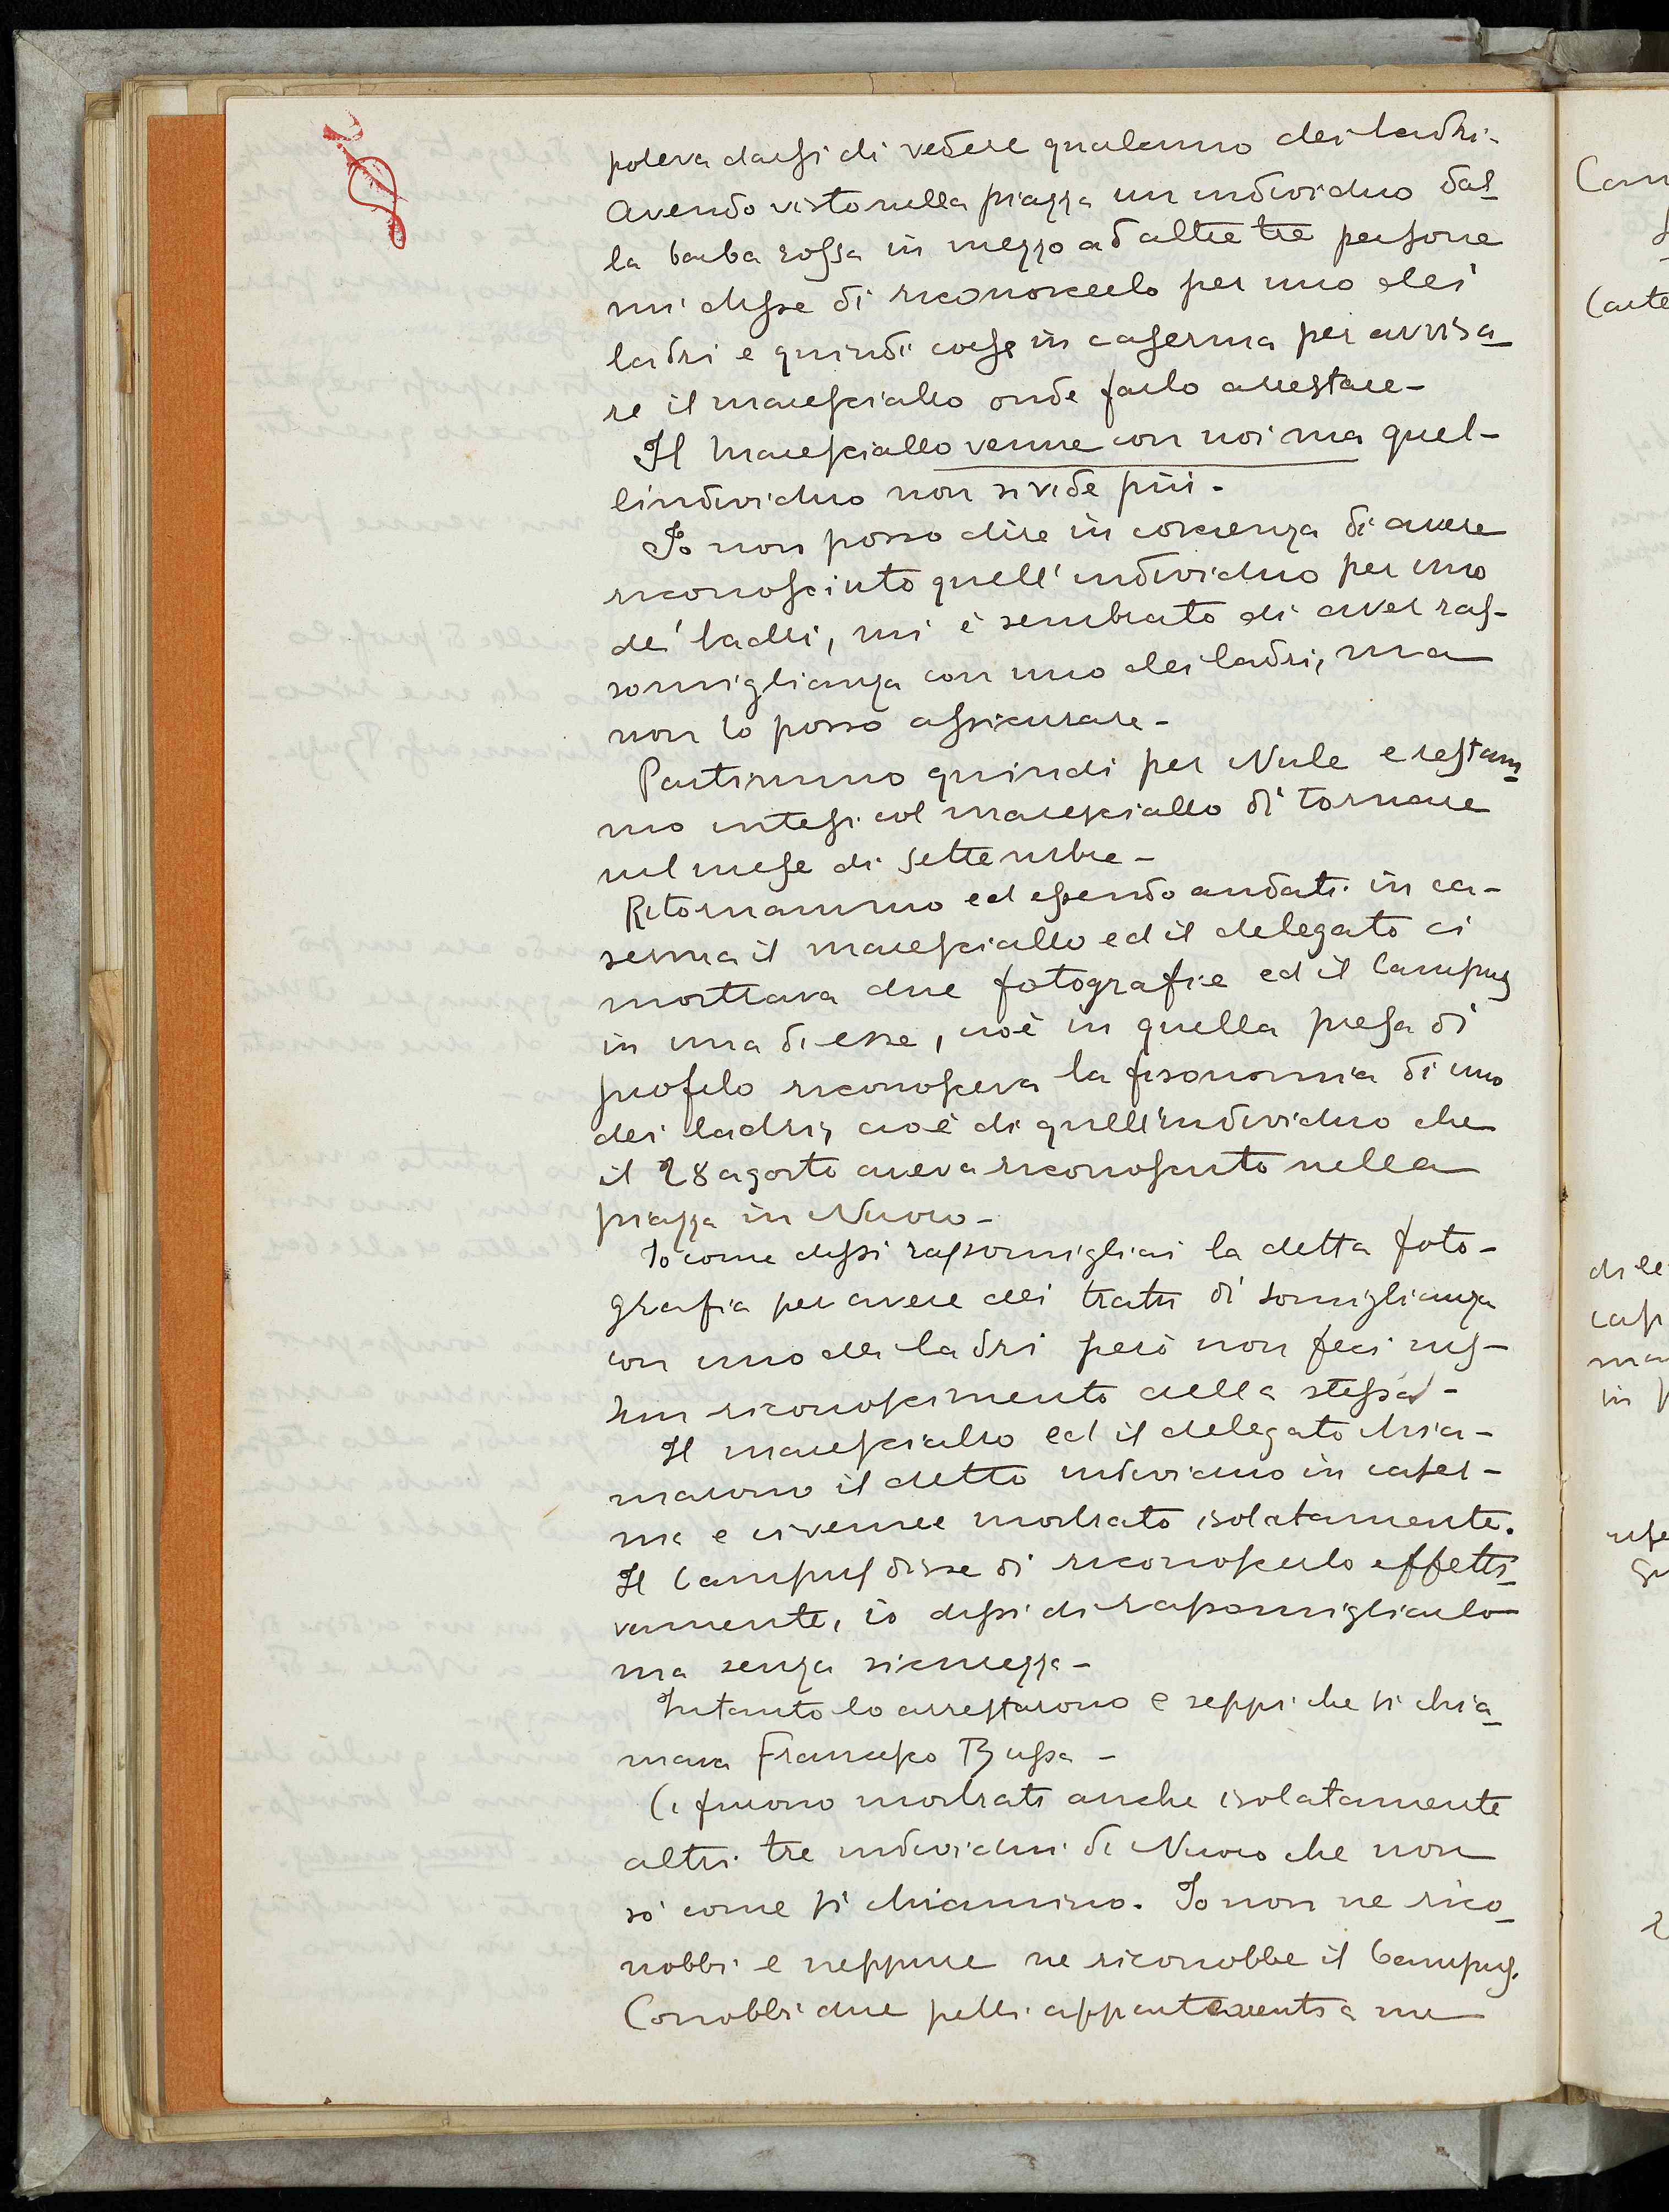 poteva darsi di vedere qualcuno dei ladri.
Avendo visto nella piazza un individuo dal-
la barba rossa in mezzo ad altre tre persone
mi disse di riconoscerlo per uno dei
ladri e quindi corse in caserma per avvisa-
re il maresciallo onde farlo arrestare-
Il Maresciallo venne con noi ma quel-
l'individuo non si vide più-
Io non posso dire in coscienza di avere
riconosciuto quell'individuo per uno
de' ladri, mi è sembrato di aver ras-
somiglianza con uno dei ladri, ma
non lo posso assicurare-
Partimmo quindi per Nule e restam-
mo intesi col maresciallo di tornare
nel mese di Settembre-
Ritornammo ed essendo andati in ca-
serma il maresciallo ed il delegato ci
mostrava due fotografie ed il Campus
in una di esse, cioè in quella presa di
profilo riconosceva la fisonomia di uno
dei ladri, cioè di quell'individuo che
il 28 agosto aveva riconosciuto nella
piazza in Nuoro-
Io come dissi rassomigliai la detta foto-
grafia per avere dei tratti di somiglianza
con uno dei ladri però non feci nes-
sun riconoscimento della stessa-
Il maresciallo ed il delegato chia-
marono il detto individuo in caser-
ma e ci venne mostrato isolatamente.
Il Campus disse di riconoscerlo effetti-
vamente, io dissi di rassomigliarlo
ma senza sicurezza-
Intanto lo arrestarono e seppi che si chia-
mava Francesco Bussa-
Ci furono mostrati anche isolatamente
altri tre individui di Nuoro che non
sò come si chiamino. Io non ne rico-
nobbi e neppure ne riconobbe il Campus.
Conobbi due pelli appartenenti a me
Cam
Carte
di le
cap
ma
in